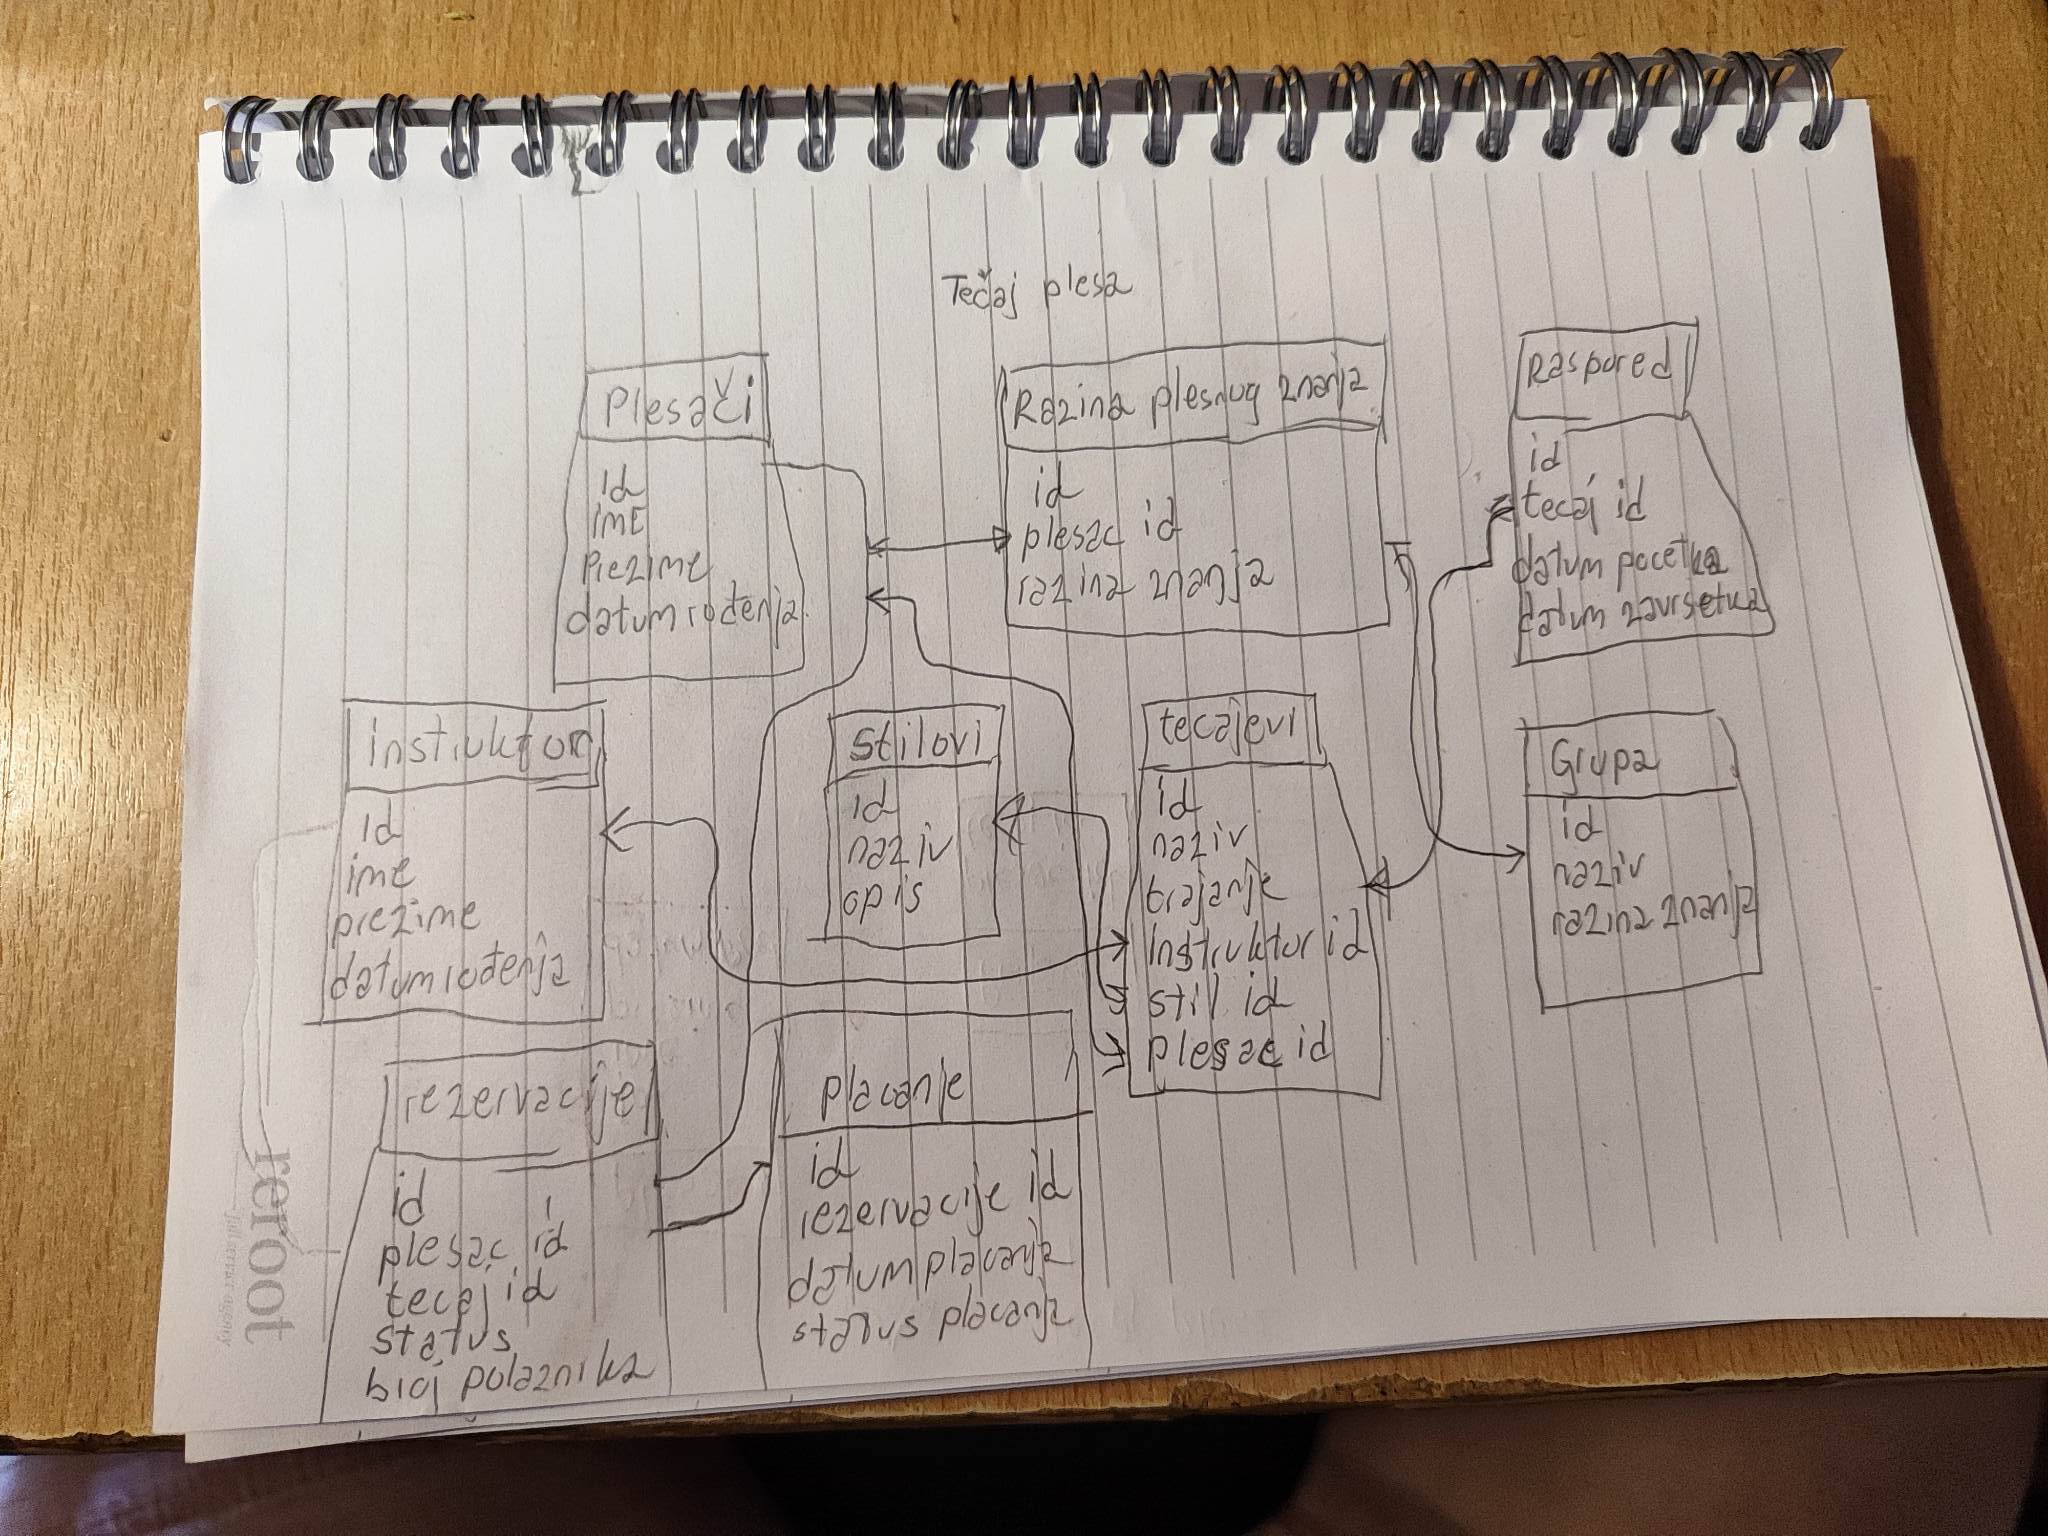 Tečaj plesa
Plesači
id
ime
Prezime
datum rođenja
Razina plesnog znanja
id
plesac id
razina znanja
Raspored
id
tecaj id
datum pocetka
datum zavrsetka
instruktor
id
ime
prezime
datum rođenja
Stilovi
id
naziv
opis
tecajevi
id
naziv
trajanje
instruktor id
stil id
plesac id
Grupa
id
naziv
razina znanja
rezervacije
id
plesac id
tecaj id
status
broj polaznika
placanje
id
rezervacije id
datum placanja
status placanja
reroot